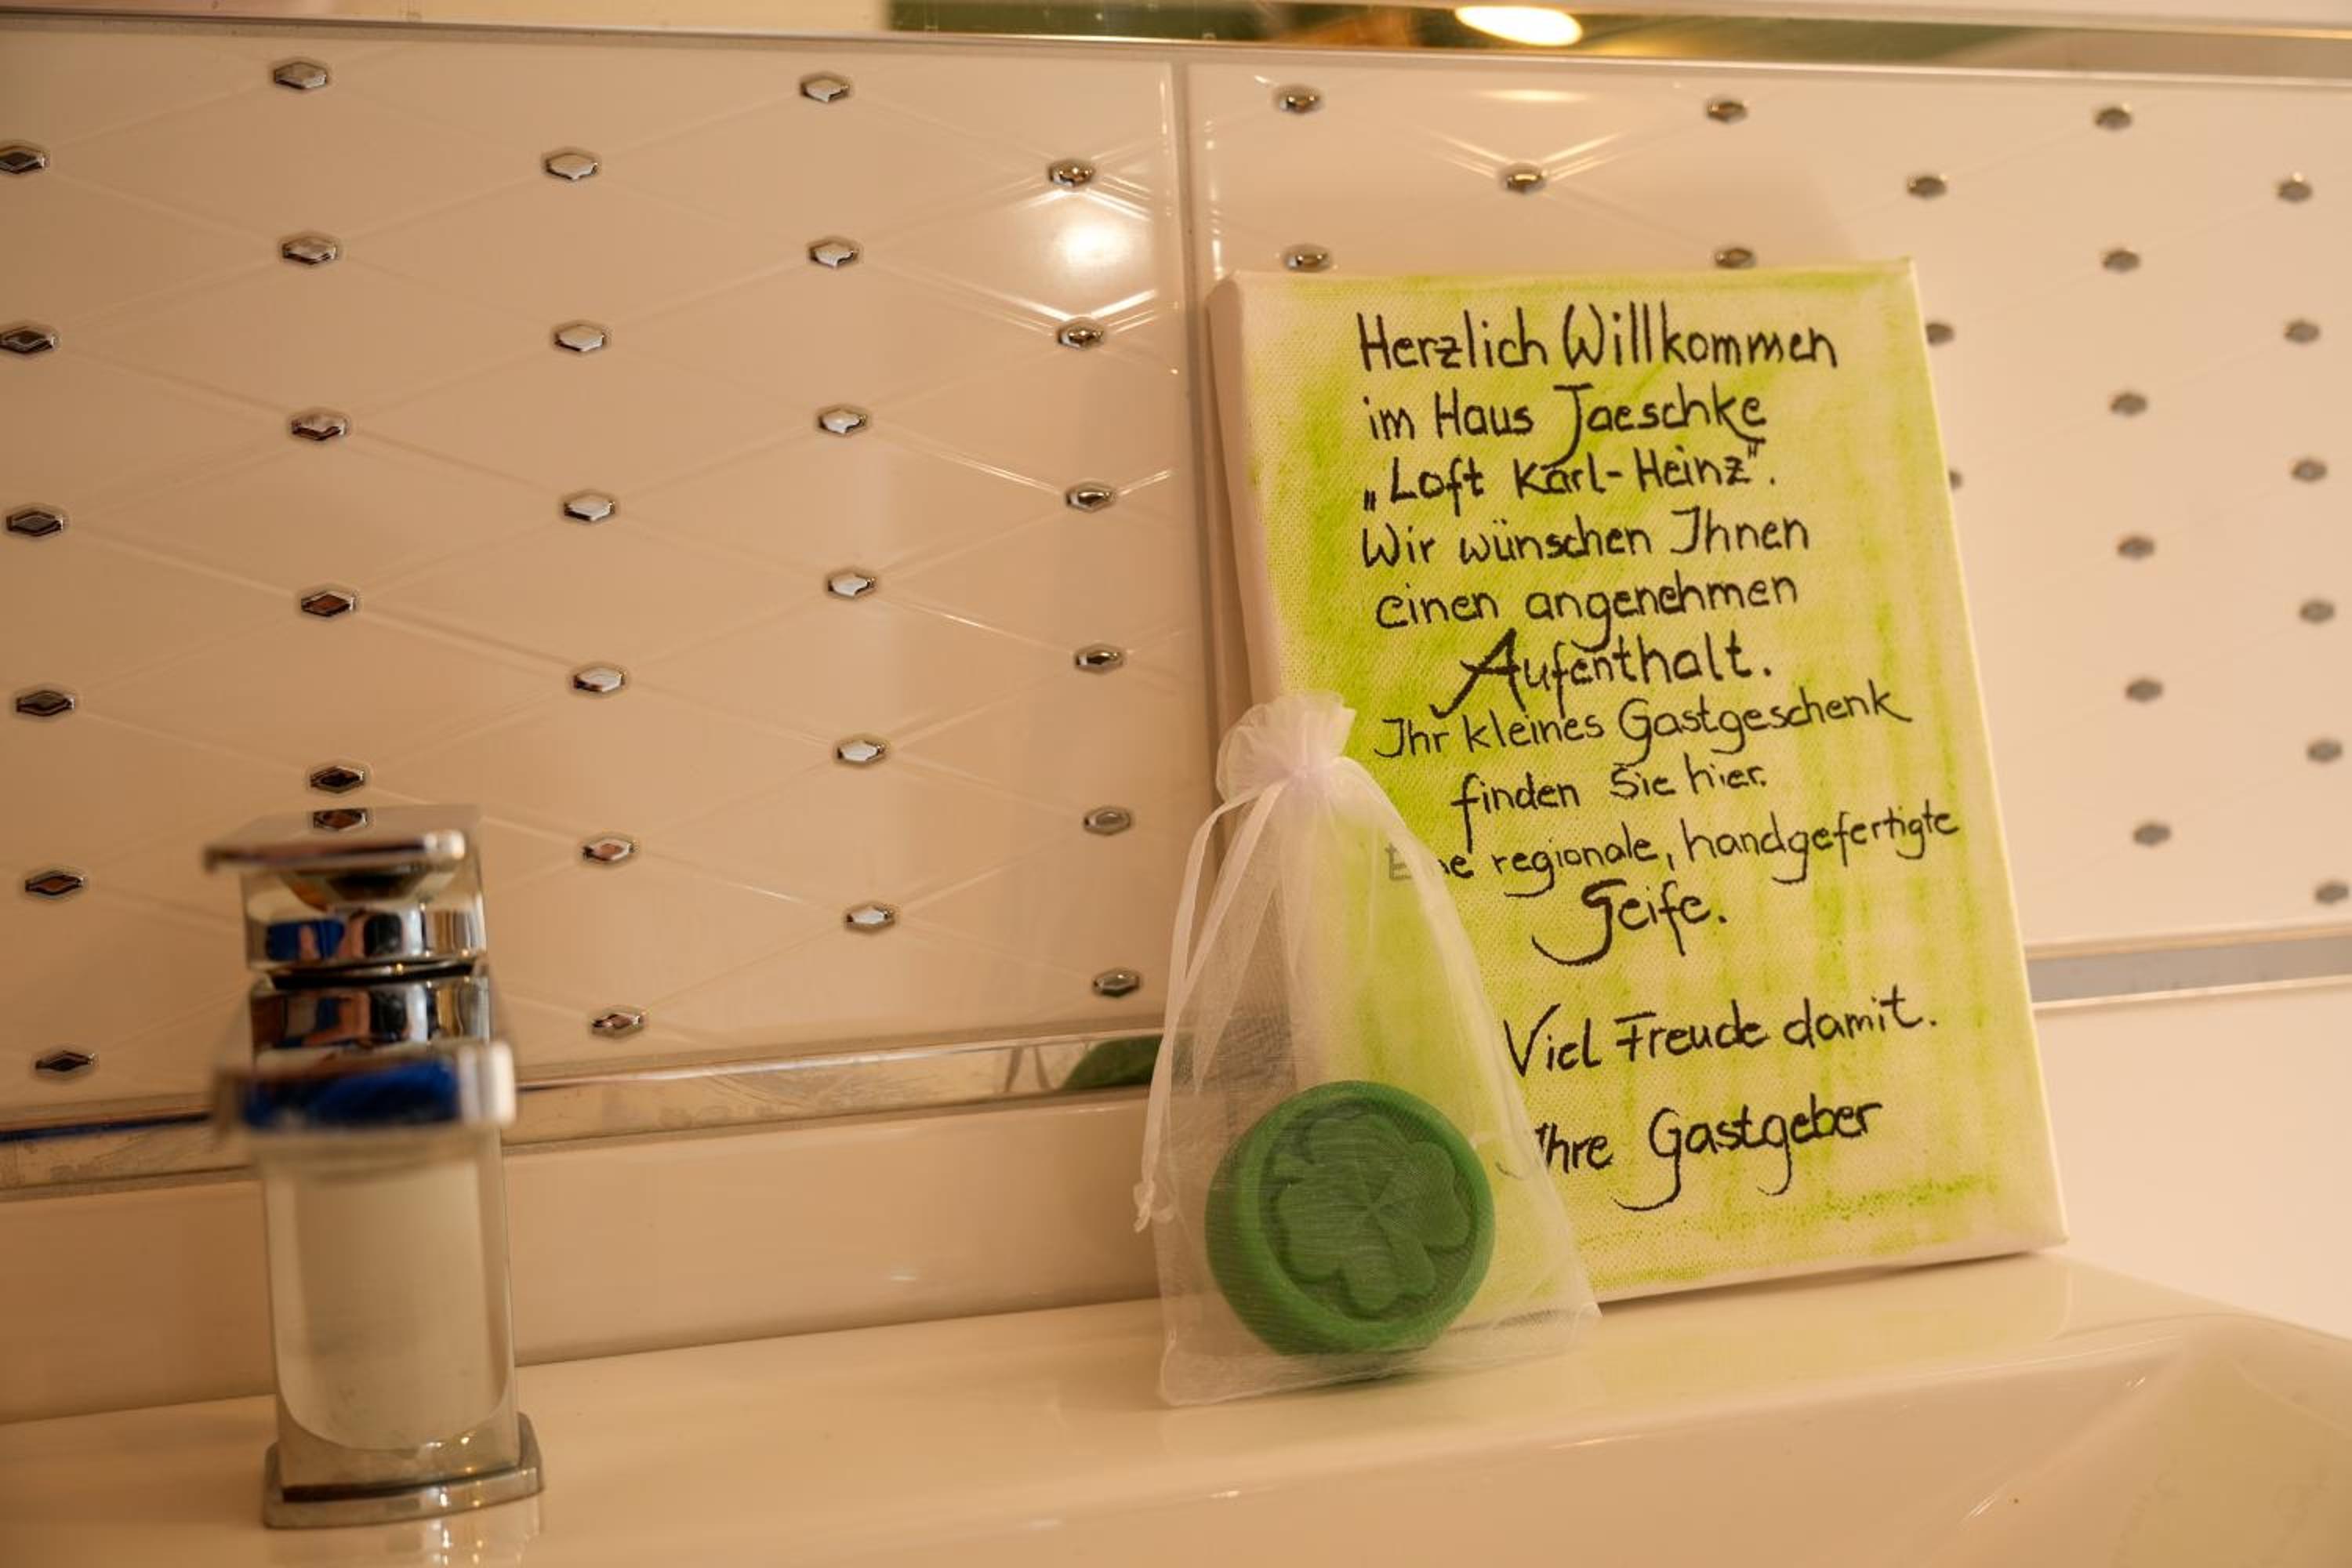 Herzlich Willkommen
im Haus Jaeschke
„Loft Karl-Heinz".
Wir wünschen Ihnen
einen angenehmen
Aufenthalt.
Ihr kleines Gastgeschenk
finden Sie hier.
Eine regionale, handgefertigte
Seife.
Viel Freude damit.
Ihre Gastgeber